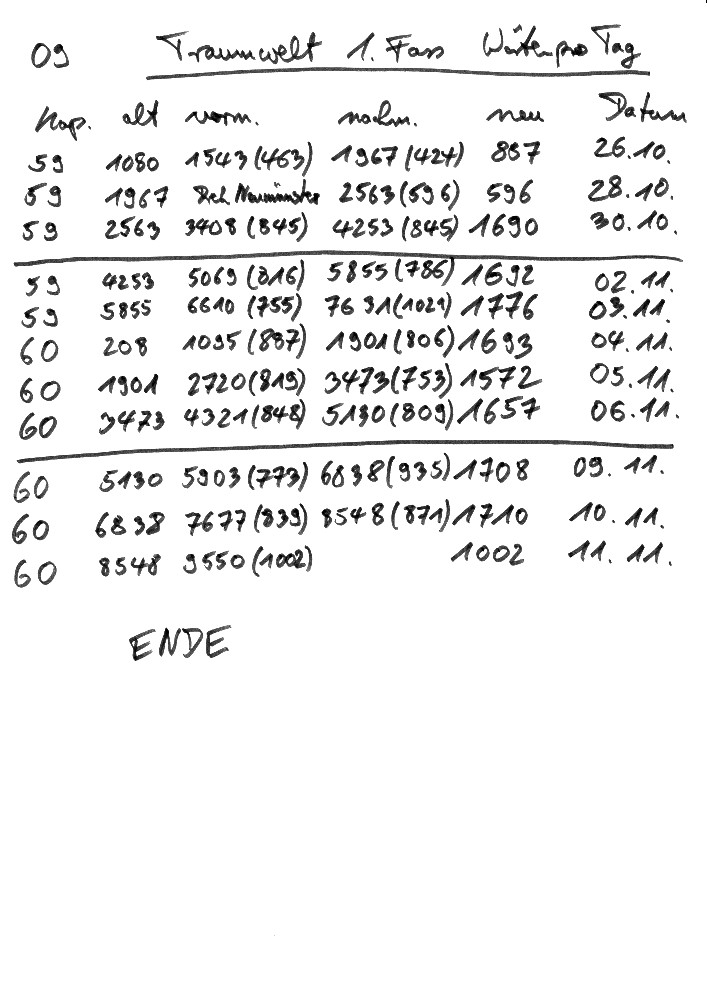 09 Traumwelt 1. Fass Wörter pro Tag
Kap. alt vorm. nachm. neu Datum
59 1080 1543 (463) 1967 (424) 887 26.10.
59 1967 Neumünster 2563 (596) 596 28.10.
59 2563 3408 (845) 4253 (845) 1690 30.10.
59 4253 5069 (816) 5855 (786) 1692 02.11.
59 5855 6610 (755) 7631 (1021) 1776 03.11.
60 208 1095 (887) 1901 (806) 1693 04.11.
60 1901 2720 (819) 3473 (753) 1572 05.11.
60 3473 4321 (848) 5130 (809) 1657 06.11.
60 5130 5903 (773) 6838 (935) 1708 09.11.
60 6838 7677 (839) 8548 (871) 1710 10.11.
60 8548 9550 (1002) 1002 11.11.
ENDE